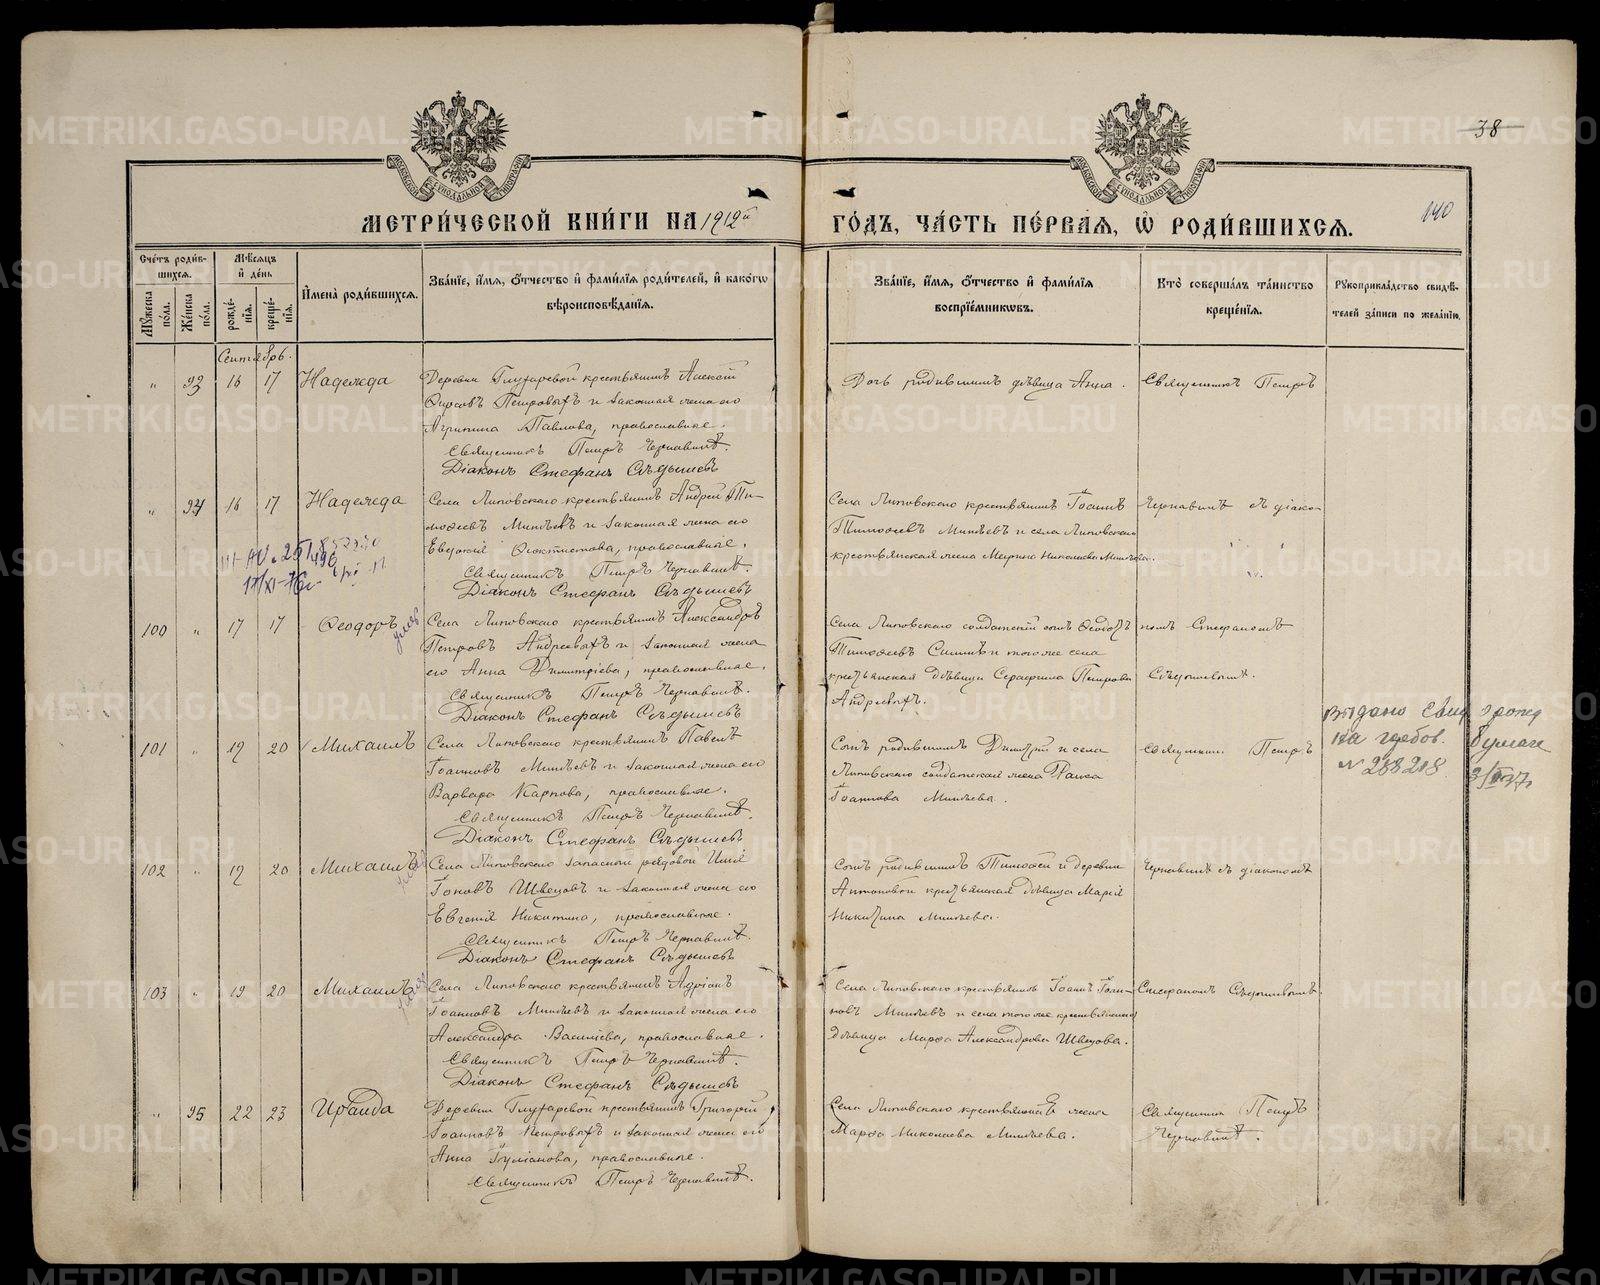 38
140
МЕТРИ́ЧЕСКОЙ КНИ́ГИ НА 1912й ГО́ДЪ, ЧА́СТЬ ПЕ́РВАЯ, Ѡ РОДИ́ВШИХСЯ.
Сче́тъ роди́вшихся.
Мꙋ́жеска по́ла.
Же́нска по́ла.
Мѣ́сяцъ и де́нь
рожде́нїя.
креще́нїя.
И҆мена̀ роди́вшихся.
Зва́нїе, и҆́мя, ѻ҆́тчество и҆ фами́лїя роди́телей, и҆ како́гѡ
вѣроисповѣ́данїя.
Зва́нїе, и҆́мя, ѻ҆́тчество и҆ фами́лїя
воспрїе́мникѡвъ.
Кто̀ соверша́лъ та́инство
креще́нїя.
Рꙋкоприкла́дство свидѣ́телей за́писи по жела́нїю.
Сентябрь.
" 93 16 17 Надежда
Деревни Глухаревой крестьянинъ Алексѣй
Петровыхъ и законная жена его
Агрипина Павлова, православные.
Священникъ Петръ Чернавинъ.
Діаконъ Стефанъ Сѣдышевъ
Дочь родившихъ дѣвица Анна.
Священникъ Петръ
" 94 16 17 Надежда
Села Липовскаго крестьянинъ Андрей Тимоѳеевъ Минѣевъ и законная жена его
Евдокія Ѳеоктистова, православные.
Священникъ Петръ Чернавинъ.
Діаконъ Стефанъ Сѣдышевъ
Села Липовскаго крестьянинъ Іоаннъ
Тимоѳеевъ Минѣевъ и села Липовскаго
крестьянская жена Марина Николаева Минѣева.
Чернавинъ съ діако-
100 " 17 17 Ѳеодоръ
умер
Села Липовскаго крестьянинъ Александръ
Петровъ Андреевыхъ и законная жена
его Анна Димитріева, православные.
Священникъ Петръ Чернавинъ.
Діаконъ Стефанъ Сѣдышевъ
Села Липовскаго солдатскій сынъ Ѳеодоръ
Тимоѳеевъ и того же села
крестьянская дѣвица Серафима Петрова
Андреевыхъ.
номъ Стефаномъ
Сѣдышевымъ.
101 " 19 20 Михаилъ
Села Липовскаго крестьянинъ Павелъ
Іоанновъ Минѣевъ и законная жена его
Варвара Карпова, православные.
Священникъ Петръ Чернавинъ.
Діаконъ Стефанъ Сѣдышевъ
Сынъ родившихъ Димитрій и села
Липовскаго солдатская жена Раиса
Іоаннова Минѣева.
священникъ Петръ
Выдано свид о рожд
на гербов. бумаге
№ 288218
102 " 19 20 Михаилъ
Села Липовскаго запасный рядовой Илія
Іоновъ Швецовъ и законная жена его
Евгенія Никитина, православные.
Священникъ Петръ Чернавинъ.
Діаконъ Стефанъ Сѣдышевъ
Сынъ родившихъ Тимоѳей и деревни
Антоновой крестьянская дѣвица Марія
Никитина Минѣева.
Чернавинъ съ діакономъ
103 " 19 20 Михаилъ
Села Липовскаго крестьянинъ Адріанъ
Іоанновъ Минѣевъ и законная жена его
Александра Василіева, православные.
Священникъ Петръ Чернавинъ.
Діаконъ Стефанъ Сѣдышевъ
Села Липовскаго крестьянинъ Іоаннъ Іоанновъ Минѣевъ и села того же крестьянская
дѣвица Марѳа Александрова Швецова.
Стефаномъ Сѣдышевымъ.
" 95 22 23 Ираида
Деревни Глухаревой крестьянинъ Григорій
Іоанновъ Петровыхъ и законная жена его
Анна Іуліанова, православные.
Священникъ Петръ Чернавинъ.
Села Липовскаго крестьянина жена
Марѳа Николаева Минѣева.
Священникъ Петръ
Чернавинъ.
METRIKI.GASO-URAL.RU